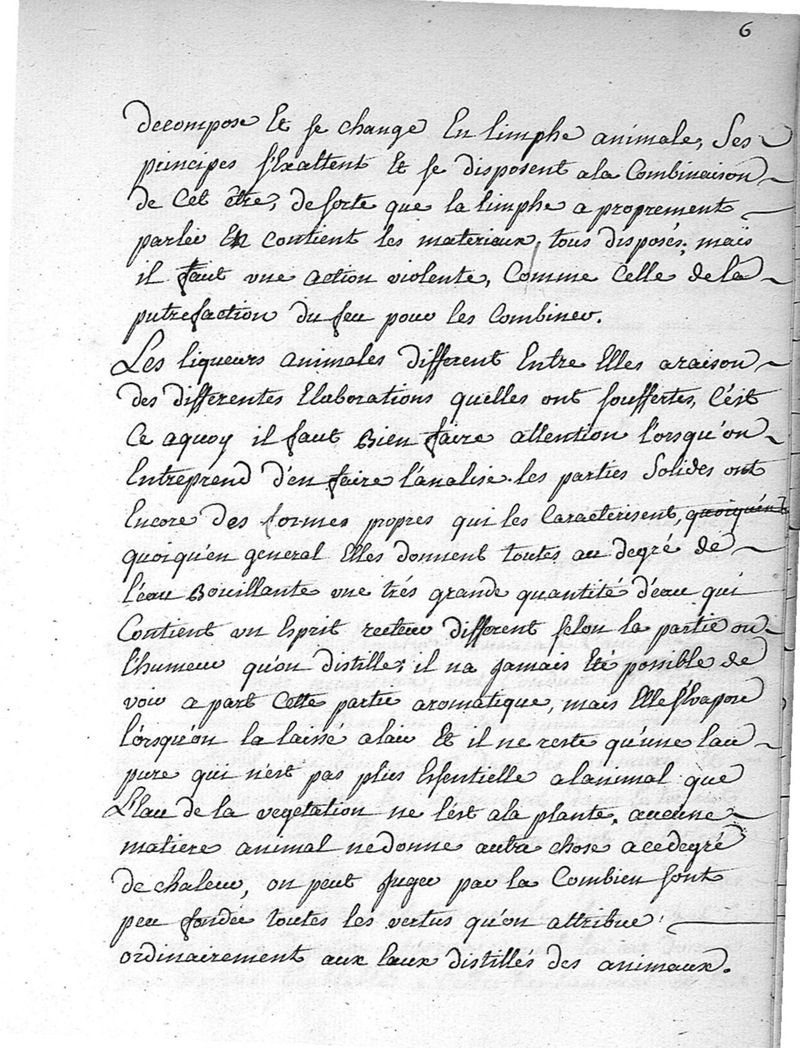 6
decompose Et se change En limphe animale, Ses
principes s'Exaltent Et se disposent ala Combinaison
de Cet être, de sorte que la limphe a proprement
parler En contient les materiaux tous disposés, mais
il faut une action violente, Comme Celle de la
putrefaction du feu pour les Combiner.
Les liqueurs animales different Entre Elles araison
des differentes Elaborations quelles ont souffertes, C'est
Ce aquoy il faut Bien faire attention lorsqu'on
Entreprend d'en faire l'analise. les parties Solides ont
Encore des formes propres qui les Caracterisent, quoiqu'en
quoiqu'en general Elles donnent toutes au degré de
l'eau Bouillante une trés grande quantité d'eau qui
Contient un Esprit recteur different selon la partie ou
l'humeur qu'on distille; il na jamais Eté possible de
voir a part Cette partie aromatique, mais Elle s'Evapore
lorsqu'on la laissé alair Et il ne reste qu'une Eau
pure qui n'est pas plus Essentielle alanimal que
L'Eau de la vegetation ne l'est ala plante. aucune
matiere animal ne donne autre chose a ce degré
de chaleur, on peut juger par la Combien sont
peu fondée toutes les vertus qu'on attribue
ordinairement aux Eaux distillés des animaux.